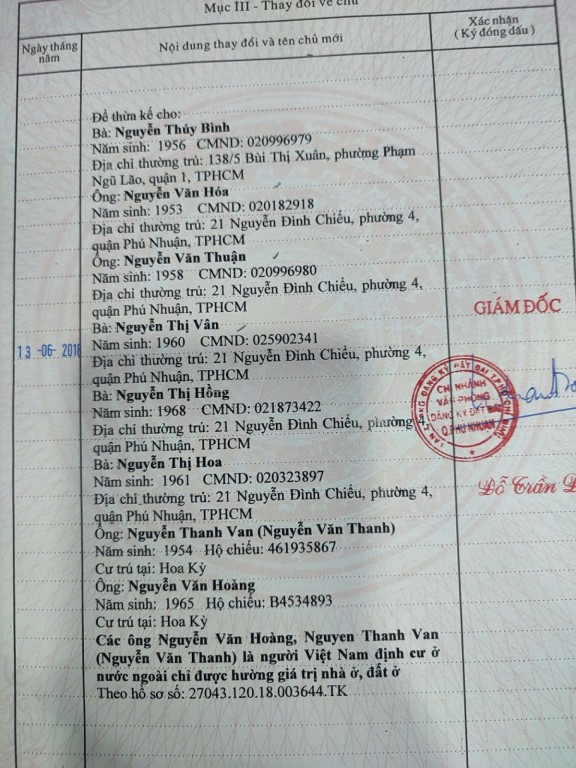 Mục III - Thay đổi về chủ
Ngày tháng năm
Nội dung thay đổi và tên chủ mới
Xác nhận
( Ký đóng dấu )
Để thừa kế cho:
Bà: Nguyễn Thúy Bình
Năm sinh: 1956 CMND: 020996979
Địa chỉ thường trú: 138/5 Bùi Thị Xuân, phường Phạm
Ngũ Lão, quận 1, TPHCM
Ông: Nguyễn Văn Hóa
Năm sinh: 1953 CMND: 020182918
Địa chỉ thường trú: 21 Nguyễn Đình Chiểu, phường 4,
quận Phú Nhuận, TPHCM
Ông: Nguyễn Văn Thuận
Năm sinh: 1958 CMND: 020996980
Địa chỉ thường trú: 21 Nguyễn Đình Chiểu, phường 4,
quận Phú Nhuận, TPHCM
Bà: Nguyễn Thị Vân
Năm sinh: 1960 CMND: 025902341
Địa chỉ thường trú: 21 Nguyễn Đình Chiểu, phường 4,
quận Phú Nhuận, TPHCM
Bà: Nguyễn Thị Hồng
Năm sinh: 1968 CMND: 021873422
Địa chỉ thường trú: 21 Nguyễn Đình Chiểu, phường 4,
quận Phú Nhuận, TPHCM
Bà: Nguyễn Thị Hoa
Năm sinh: 1961 CMND: 020323897
Địa chỉ thường trú: 21 Nguyễn Đình Chiểu, phường 4,
quận Phú Nhuận, TPHCM
Ông: Nguyễn Thanh Van (Nguyễn Văn Thanh)
Năm sinh: 1954 Hộ chiếu: 461935867
Cư trú tại: Hoa Kỳ
Ông: Nguyễn Văn Hoàng
Năm sinh: 1965 Hộ chiếu: B4534893
Cư trú tại: Hoa Kỳ
Các ông Nguyễn Văn Hoàng, Nguyen Thanh Van
(Nguyễn Văn Thanh) là người Việt Nam định cư ở
nước ngoài chỉ được hưởng giá trị nhà ở, đất ở
Theo hồ sơ số: 27043.120.18.003644.TK
13 -06- 2018
GIÁM ĐỐC
CHI NHÁNH
VĂN PHÒNG
ĐĂNG KÝ ĐẤT ĐAI
Q.PHÚ NHUẬN
Đỗ Trần